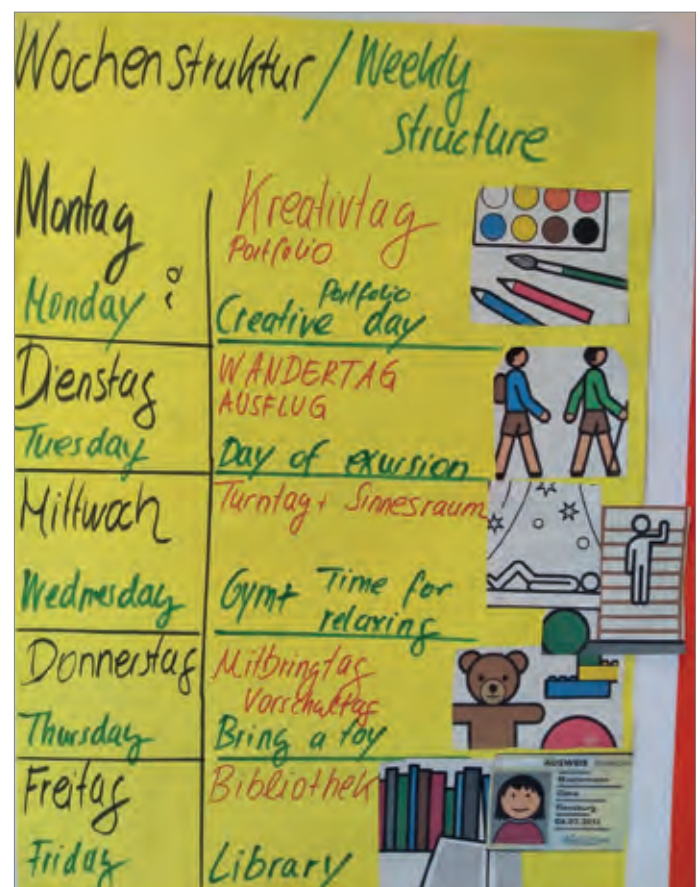 Wochenstruktur / Weekly
structure
Montag
Monday
Kreativtag
Portfolio
Portfolio
Creative day
Dienstag
Tuesday
WANDERTAG
AUSFLUG
Day of exursion
Mittwoch
Wednesday
Turntag + Sinnesraum
Gym + Time for
relaxing
Donnerstag
Thursday
Mitbringtag
Vorschultag
Bring a toy
Freitag
Friday
Bibliothek
Library
AUSWEIS
Mustermann
Clara
Flensburg